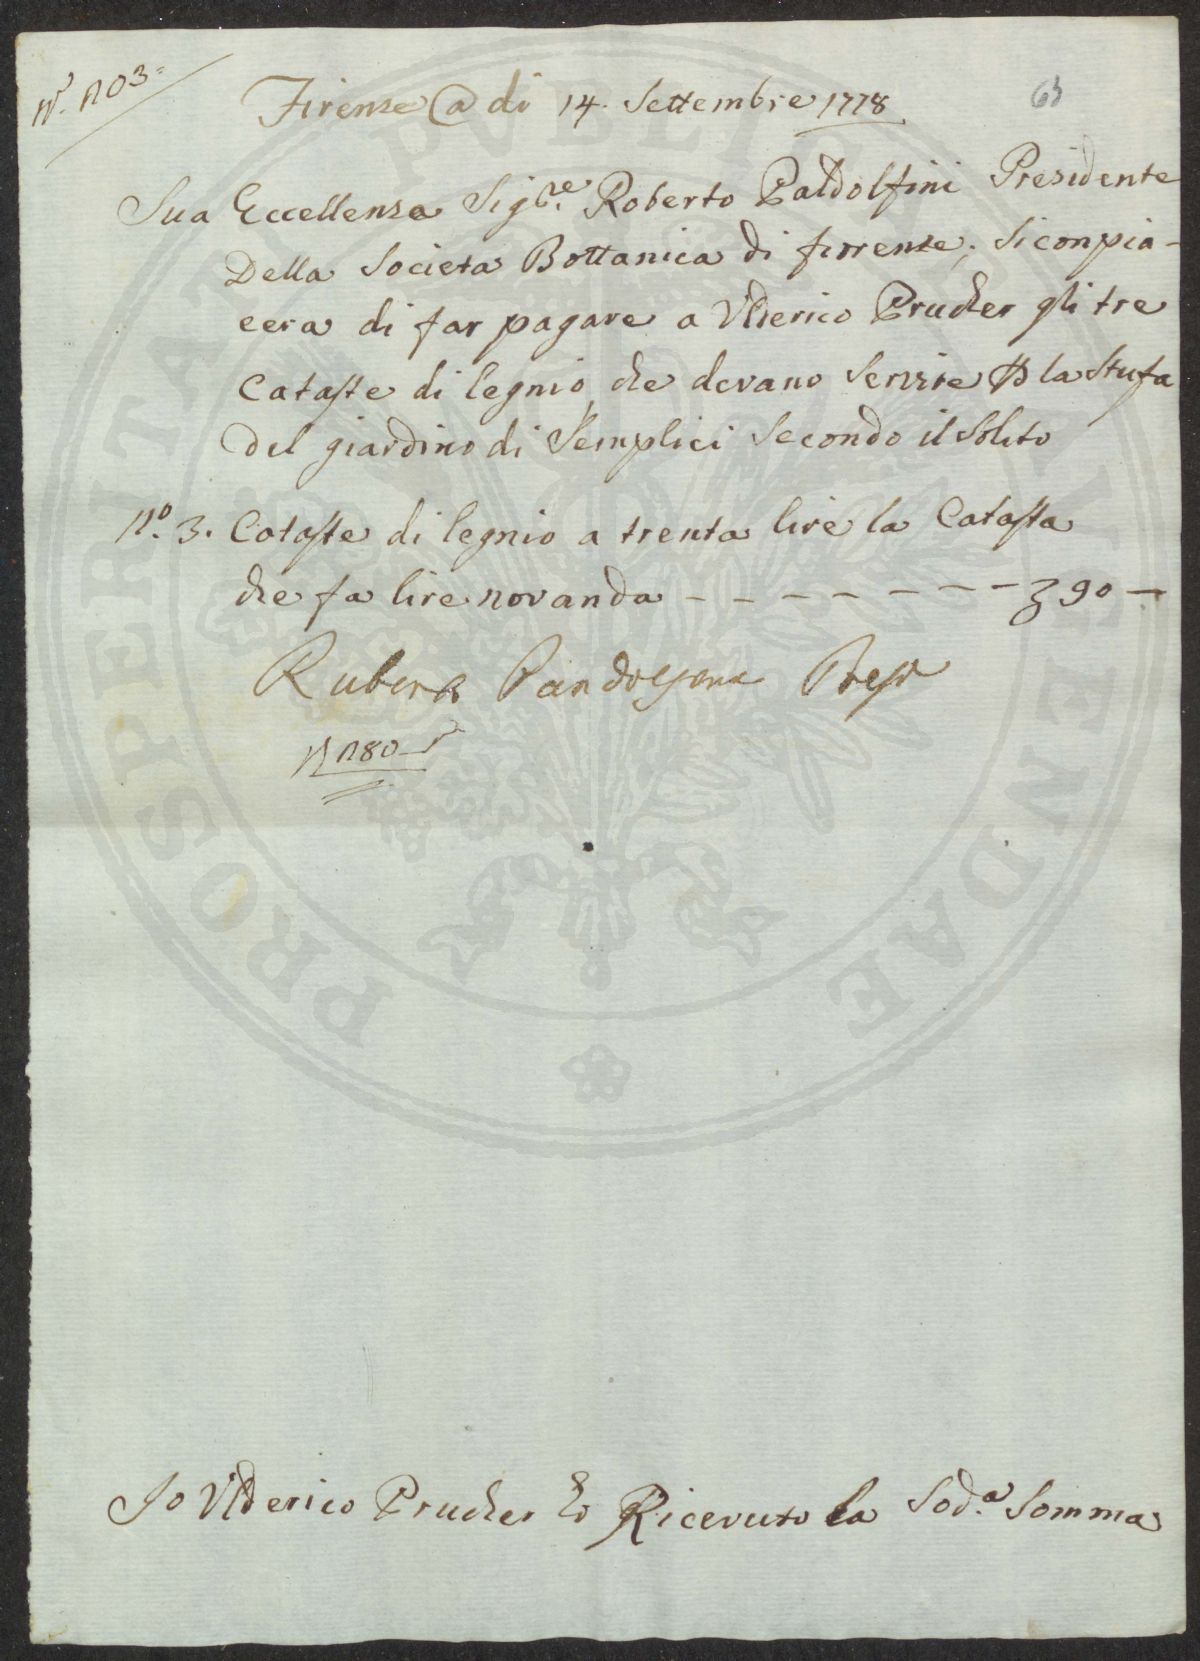 N.° 1103=
63
Firenze @ di 14. Settembre 1778
Sua Eccellenza Sig.re Roberto Paldolfini Presidente
Della Societa Bottanica di firrenze; Si conpia-
cera di far pagare a Vlderico Prucher gli tre
Cataste di legnio che devano Servire p la Stufa
Del giardino di Semplici Secondo il Solito
N.° 3. Cataste di legnio a trenta lire la Catasta
che fa lire novanda - - - - - - - - 90 -
Ruberto Pandolfini Presid
N 1180
Jo Vlderico Prucher ho Ricevuto la Sod.a Somma
PROSPERITATI PVBLICAE AVGENDAE